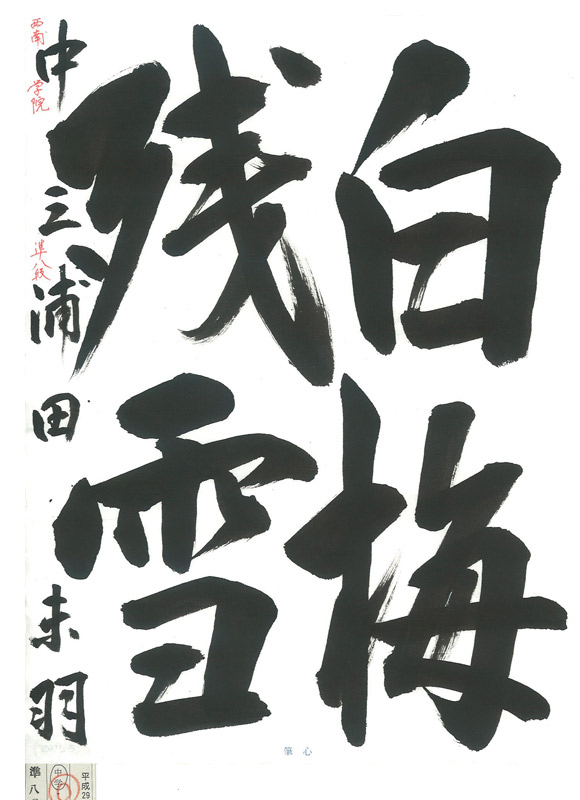 白梅
残雪
西南
学院
中三浦田未羽
準八段
筆心
平成29
中学
準八